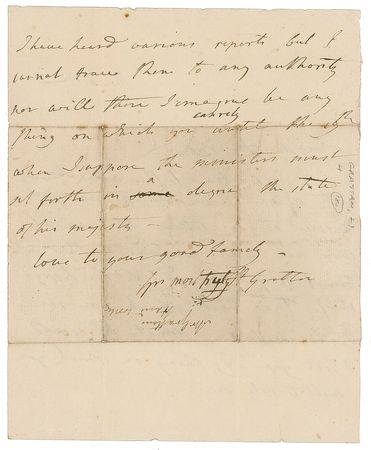 I have heard various reports but I
cannot trace them to any authority
nor will there I imagine be any
entirely
thing on which you until the
when I suppose the ministers must
set forth in a some degree the state
of his majesty —
love to your good family —
yrs most truly H Grattan
Mr Grattan
GRATTAN, H